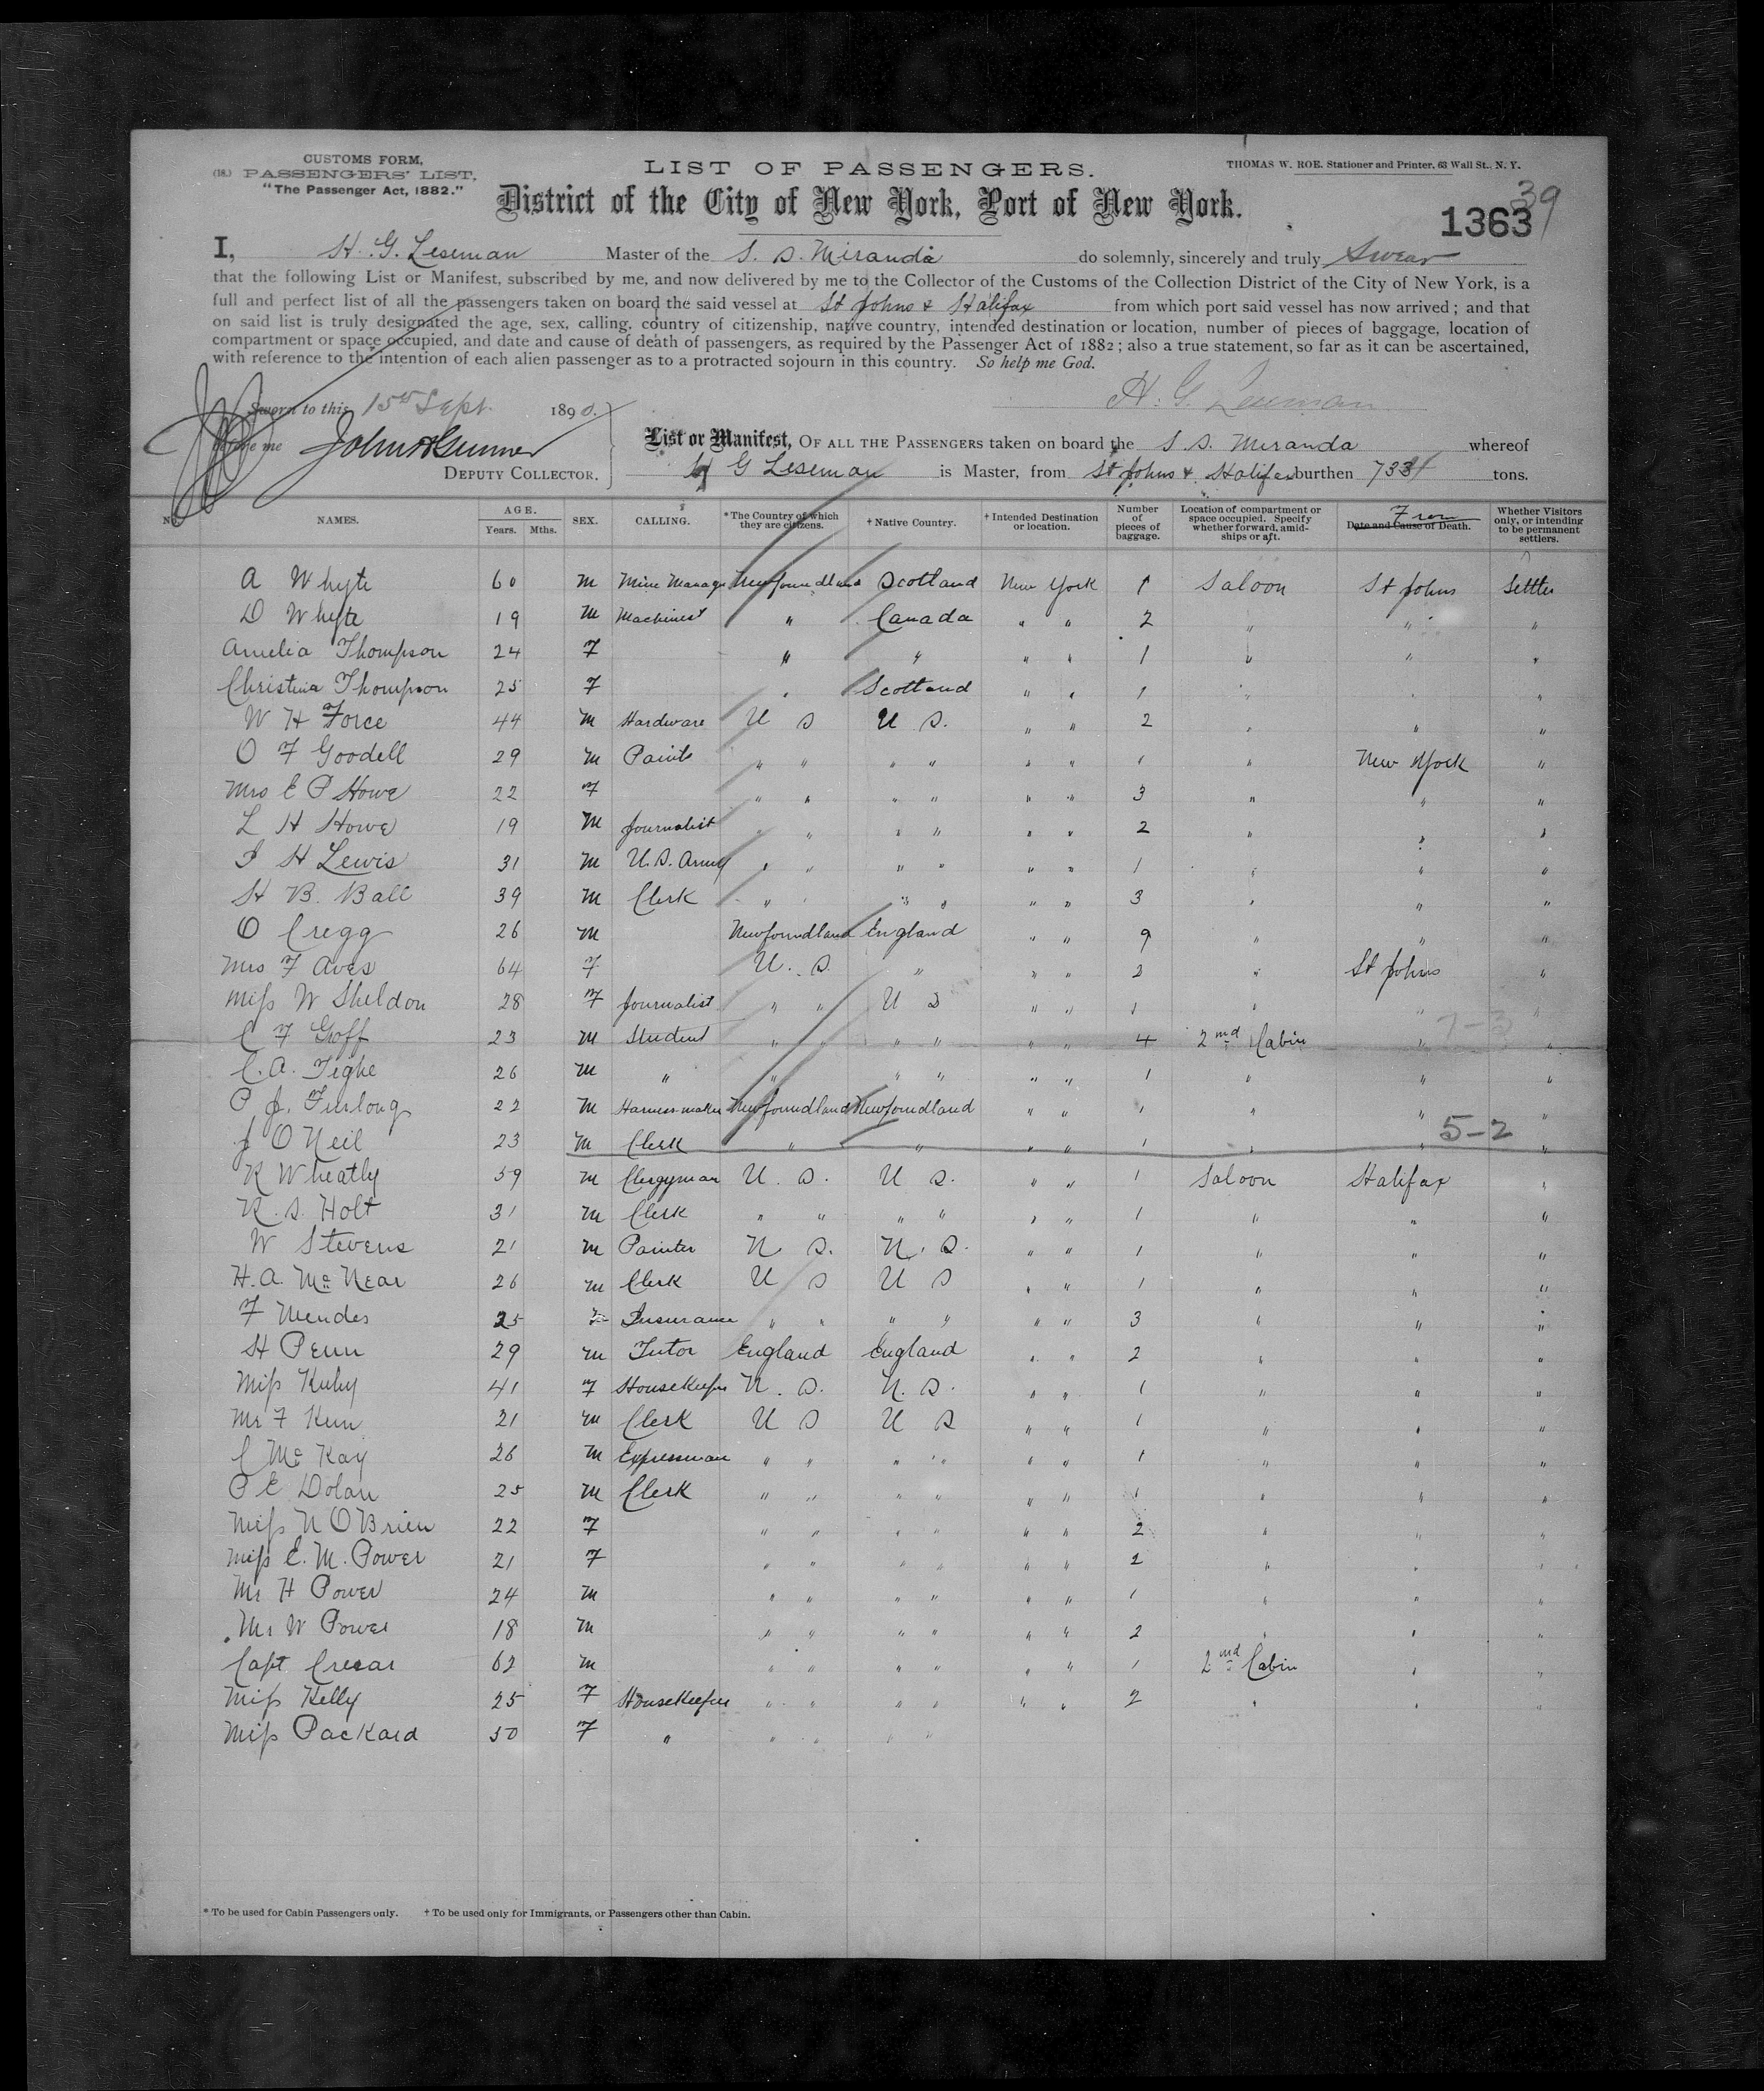 CUSTOMS FORM,
(18.) PASSENGERS' LIST.
"The Passenger Act, 1882."
LIST OF PASSENGERS.
THOMAS W. ROE. Stationer and Printer, 63 Wall St., N. Y.
District of the City of New York, Port of New York.
39
1363
I, H. G. Leseman Master of the S. S. Miranda do solemnly, sincerely and truly Swear
that the following List or Manifest, subscribed by me, and now delivered by me to the Collector of the Customs of the Collection District of the City of New York, is a
full and perfect list of all the passengers taken on board the said vessel at St Johns & Halifax from which port said vessel has now arrived; and that
on said list is truly designated the age, sex, calling, country of citizenship, native country, intended destination or location, number of pieces of baggage, location of
compartment or space occupied, and date and cause of death of passengers, as required by the Passenger Act of 1882; also a true statement, so far as it can be ascertained,
with reference to the intention of each alien passenger as to a protracted sojourn in this country. So help me God.
H. G. Leseman
Sworn to this 15th Sept. 1890.
before me John
DEPUTY COLLECTOR.
List or Manifest, OF ALL THE PASSENGERS taken on board the S. S. Miranda whereof
H G Leseman is Master, from St Johns & Halifax burthen tons.
No. NAMES. AGE. Years. Mths. SEX. CALLING. *The Country of which they are citizens. †Native Country. †Intended Destination or location. Number of pieces of baggage. Location of compartment or space occupied. Specify whether forward, amidships or aft. From Date and Cause of Death. Whether Visitors only, or intending to be permanent settlers.
A Whyte 60 M Mine Manager Newfoundland Scotland New York 1 Saloon St Johns Settler
D Whyte 19 M Machinest " Canada " " 2 " " "
Amelia Thompson 24 F " " " " 1 " " "
Christina Thompson 25 F " Scotland " " 1 " " "
W H Force 44 M Hardware U S U S. " " 2 " " "
O F Goodell 29 M Paints " " " " " " 1 " New York "
Mrs E P Howe 22 F " " " " " " 3 " " "
L H Howe 19 M Journalist " " " " " " 2 " " "
I H Lewis 31 M U.S. Army " " " " " " 1 " " "
H B. Ball 39 M Clerk " " " " " " 3 " " "
O Cregg 26 M Newfoundland England " " 9 " " "
Mrs F Aves 64 F U. S. " " " 2 " St Johns "
Miss W Sheldon 28 F Journalist " " U S " " 1 " " "
7-3
C F Goff 23 M Student " " " " " " 4 2nd Cabin " "
C. A. Tighe 26 M " " " " " " 1 " " "
P J. Furlong 22 M Harness maker Newfoundland Newfoundland " " 1 " " "
5-2
J O Neil 23 M Clerk " " " " 1 " " "
R Wheatly 59 M Clergyman U. S. U S. " " 1 Saloon Halifax "
R. S. Holt 31 M Clerk " " " " " " 1 " " "
W Stevens 21 M Painter U. S. U. S. " " 1 " " "
H. A. Mc Near 26 M Clerk U S U S " " 1 " " "
F Mendes 25 M Insurance " " " " " " 3 " " "
H Penn 29 M Tutor England England " " 2 " " "
Miss Kuhy 41 F Housekeeper U. S. U. S. " " 1 " " "
Mr F Kun 21 M Clerk U S U S " " 1 " " "
C Mc Kay 26 M Expressman " " " " " " 1 " " "
P E Dolan 25 M Clerk " " " " " " 1 " " "
Miss N O Brien 22 F " " " " " " 2 " " "
Miss E. M. Power 21 F " " " " " " 2 " " "
Mr H Power 24 M " " " " " " 1 " " "
Mr W Power 18 M " " " " " " 2 " " "
Capt. Crerar 62 M " " " " " " 1 2nd Cabin " "
Miss Kelly 25 F Housekeeper " " " " " " 2 " " "
Miss Packard 50 F " " " " "
* To be used for Cabin Passengers only. † To be used only for Immigrants, or Passengers other than Cabin.